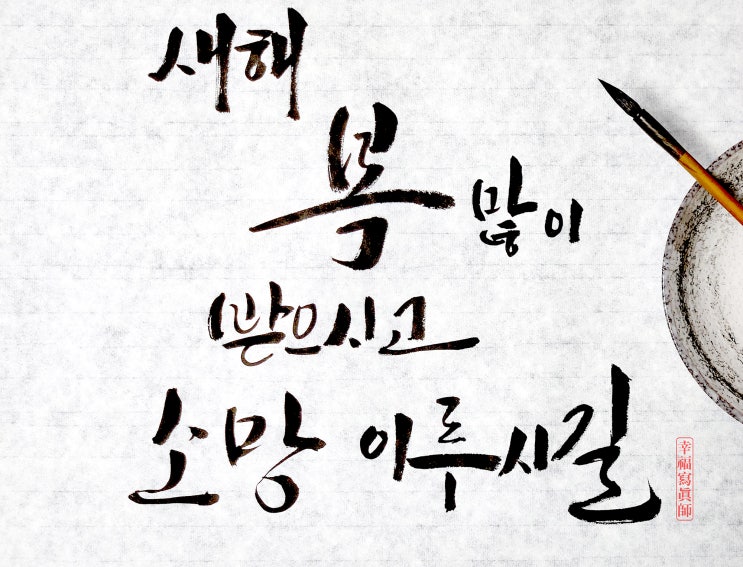 새해
복 많이
받으시고
소망 이루시길
幸福寫眞師